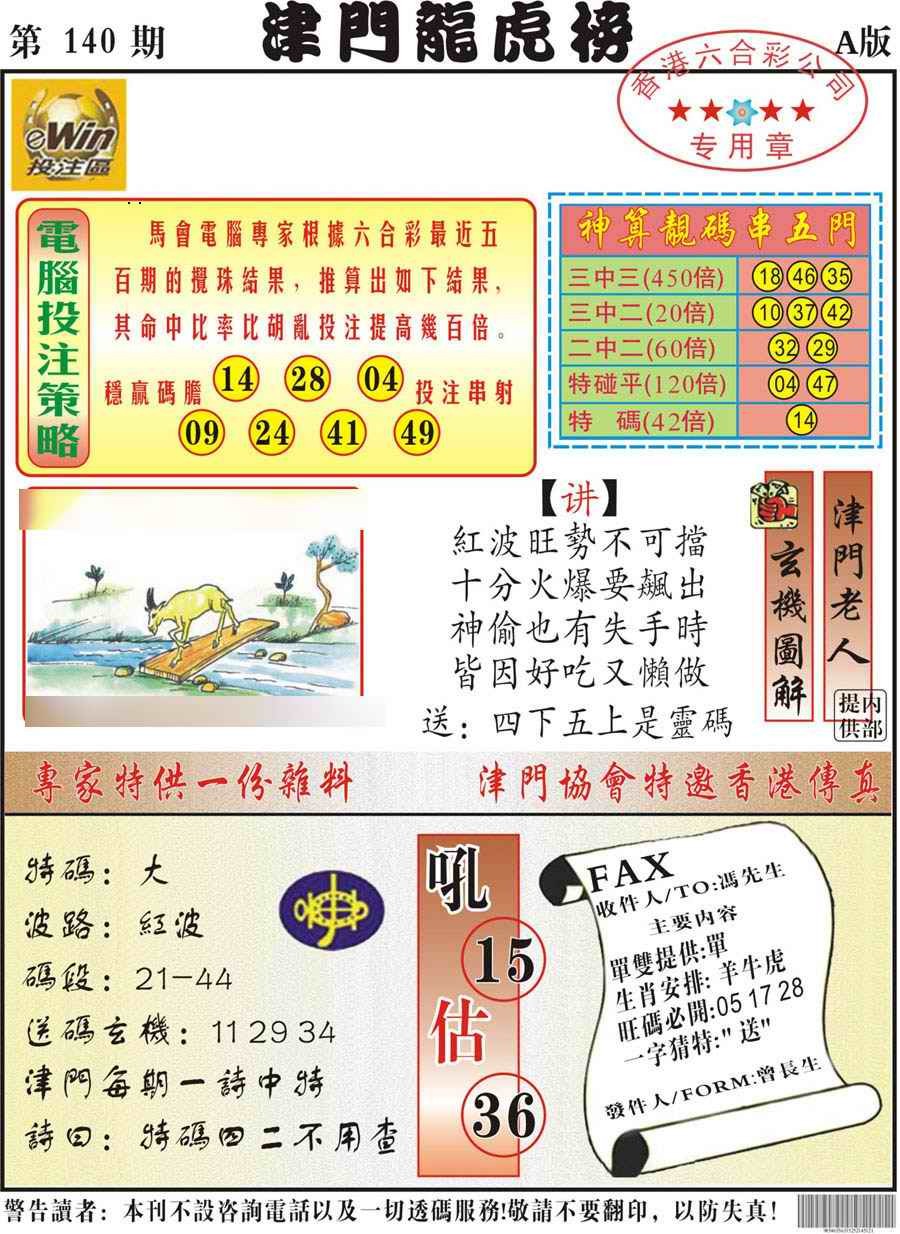 第 140 期
津門龍虎榜
A版
香港六合彩公司
专用章
eWin
投注區
電腦投注策略
馬會電腦專家根據六合彩最近五
百期的攪珠結果，推算出如下結果，
其命中比率比胡亂投注提高幾百倍。
穩贏碼膽 14 28 04 投注串射
09 24 41 49
神算靚碼串五門
三中三(450倍) 18 46 35
三中二(20倍) 10 37 42
二中二(60倍) 32 29
特碰平(120倍) 04 47
特 碼(42倍) 14
【讲】
紅波旺勢不可擋
十分火爆要飆出
神偷也有失手時
皆因好吃又懶做
送：四下五上是靈碼
玄機圖解
津門老人
內部提供
專家特供一份雜料
津門協會特邀香港傳真
特碼：大
波路：紅波
碼段：21—44
送碼玄機：11 29 34
津門每期一詩中特
詩曰：特碼四二不用查
吼
15
估
36
FAX
收件人/TO:馮先生
主要內容
單雙提供:單
生肖安排:羊牛虎
旺碼必開:05 17 28
一字猜特:"送"
發件人/FORM:曾長生
警告讀者：本刊不設咨詢電話以及一切透碼服務!敬請不要翻印，以防失真！